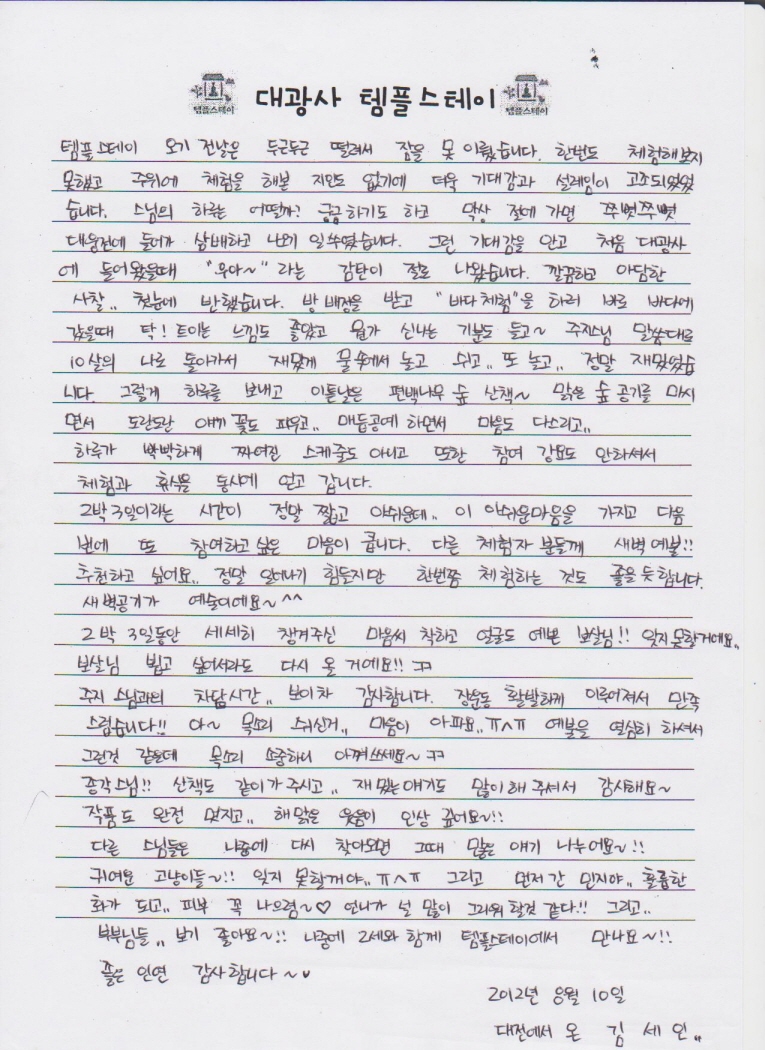 대광사 템플스테이
템플스테이
템플스테이
템플스테이 오기 전날은 두근두근 떨려서 잠을 못 이뤘습니다. 한번도 체험해보지
못했고 주위에 체험을 해본 지인도 없기에 더욱 기대감과 설레임이 고조되었었
습니다. 스님의 하루는 어떨까? 궁금하기도 하고 막상 절에 가면 쭈뼛쭈뼛
대웅전에 들어가 삼배하고 나오기 일쑤였습니다. 그런 기대감을 안고 처음 대광사
에 들어왔을때 "우아~" 라는 감탄이 절로 나왔습니다. 깔끔하고 아담한
사찰,, 첫눈에 반했습니다. 방 배정을 받고 "바다체험"을 하러 바로 바다에
갔을때 탁! 트이는 느낌도 좋았고 뭔가 신나는 기분도 들고~ 주지스님 말씀대로
10살의 나로 돌아가서 재밌게 물속에서 놀고 쉬고,, 또 놀고,, 정말 재밌었습
니다. 그렇게 하루를 보내고 이튿날은 편백나무 숲 산책~ 맑은 숲 공기를 마시
면서 도란도란 얘기 꽃도 피우고,, 매듭공예 하면서 마음도 다스리고,,
하루가 빡빡하게 짜여진 스케줄도 아니고 또한 참여 강요도 안하셔서
체험과 휴식을 동시에 얻고 갑니다.
2박 3일이라는 시간이 정말 짧고 아쉬운데,, 이 아쉬운마음을 가지고 다음
번에 또 참여하고 싶은 마음이 큽니다. 다른 체험자 분들께 새벽 예불!!
추천하고 싶어요,, 정말 일어나기 힘들지만 한번쯤 체험하는 것도 좋을듯 합니다.
새벽공기가 예술이에요~^^
2박 3일동안 세세히 챙겨주신 마음씨 착하고 얼굴도 예쁜 보살님!! 잊지못할거에요,,
보살님 뵙고 싶어서라도 다시 올 거에요!! ㅋㅋ
주지 스님과의 차담시간,, 보이차 감사합니다. 장운동 활발하게 이루어져서 만족
스럽습니다!! 아~ 목소리 쉬신거,, 마음이 아파요,,ㅠ^ㅠ 예불을 열심히 하셔서
그런것 같은데 목소리 소중하니 아껴쓰세요~ㅋㅋ
종각스님!! 산책도 같이가 주시고,, 재밌는얘기도 많이해 주셔서 감사해요~
작품도 완전 멋지고,, 해맑은 웃음이 인상 깊어요~!!
다른 스님들은 나중에 다시 찾아오면 그때 많은 얘기 나누어요~!!
귀여운 고냥이들~!! 잊지 못할꺼야,,ㅠ^ㅠ 그리고 먼저 간 민지야,, 훌륭한
화가 되고,, 피부 꼭 나으렴~♡ 언니가 널 많이 그리워 할것 같다!! 그리고,,
부부님들,, 보기 좋아요~!! 나중에 2세와 함께 템플스테이에서 만나요~!!
좋은 인연 감사합니다~♥
2012년 8월 10일
대전에서 온 김세인,,